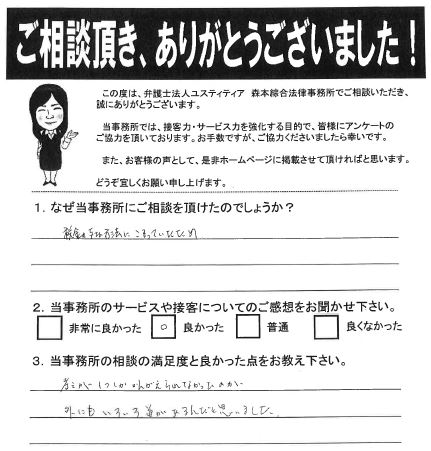 ご相談頂き、ありがとうございました！
この度は、弁護士法人ユスティティア 森本綜合法律事務所でご相談いただき、
誠にありがとうございます。
当事務所では、接客力・サービス力を強化する目的で、皆様にアンケートの
ご協力を頂いております。お手数ですが、ご協力くださいましたら幸いです。
また、お客様の声として、是非ホームページに掲載させて頂ければと思います。
どうぞ宜しくお願い申し上げます。
1．なぜ当事務所にご相談を頂けたのでしょうか？
方法にこまっていたため
2．当事務所のサービスや接客についてのご感想をお聞かせ下さい。
非常に良かった ○ 良かった 普通 良くなかった
3．当事務所の相談の満足度と良かった点をお教え下さい。
考えが1つしかかんがえられなかったのが
外にもいろいろ道があるんだと思いました。